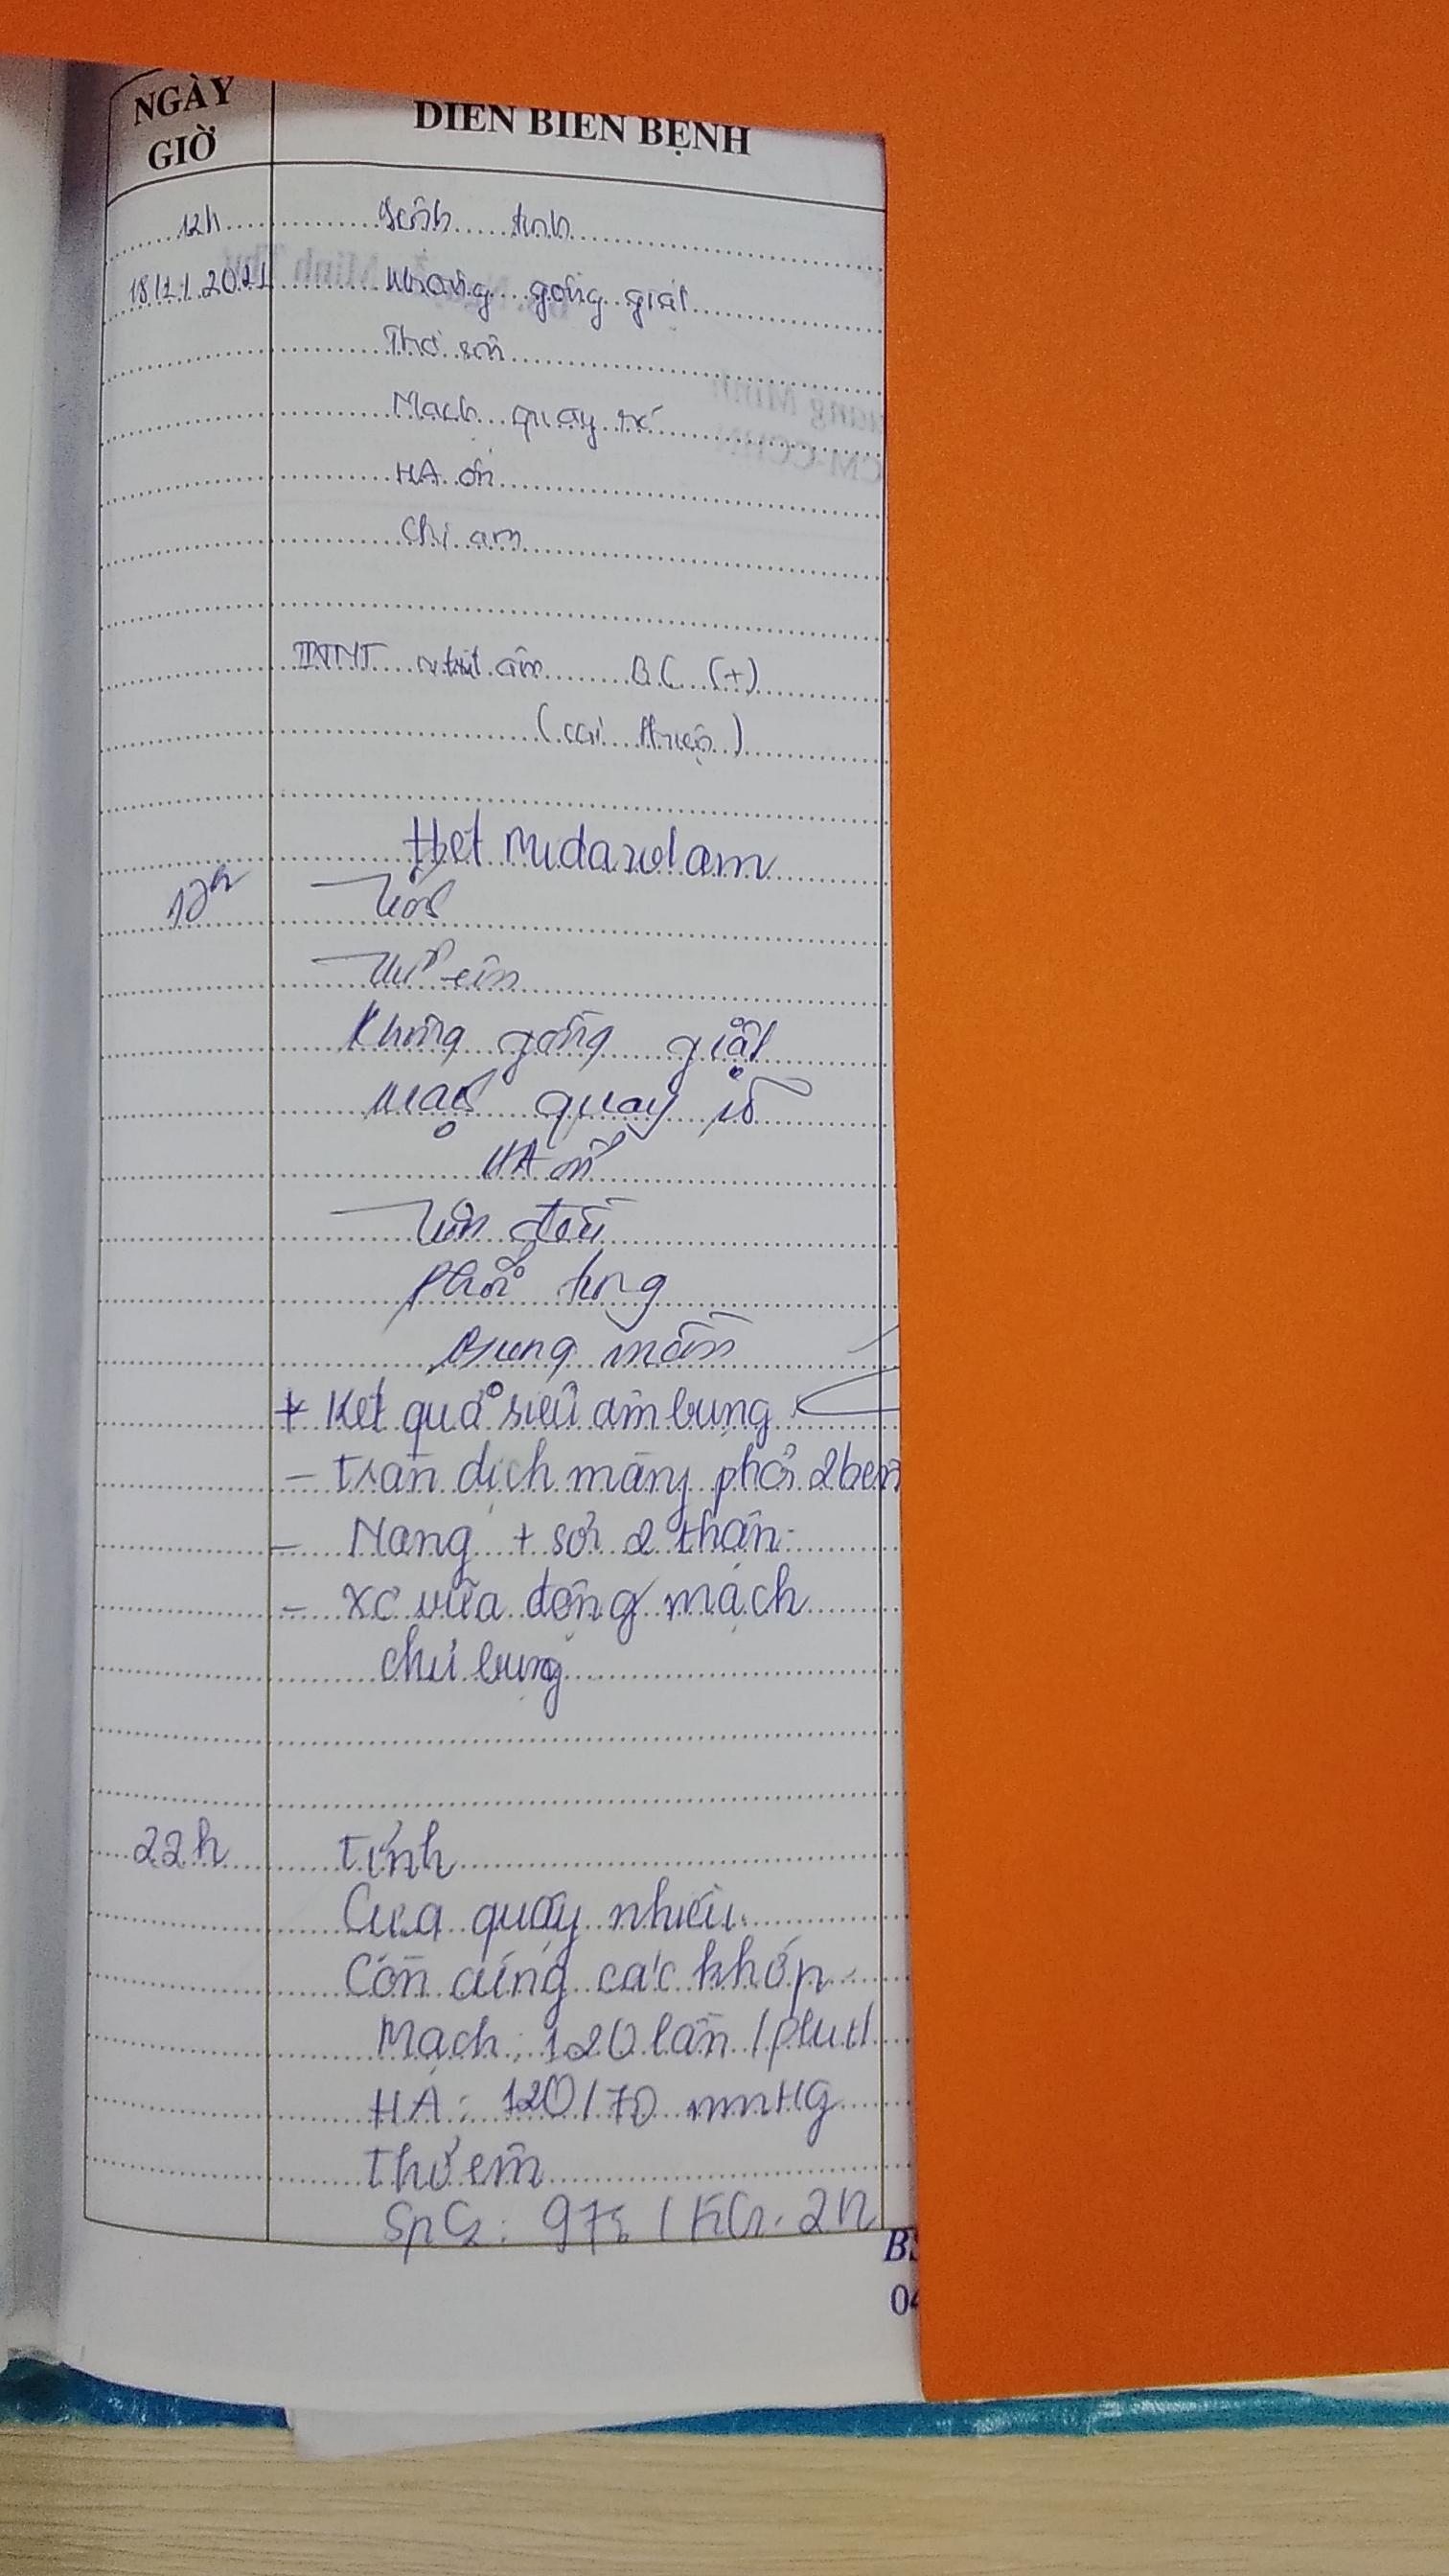 NGÀY
GIỜ
DIỄN BIẾN BỆNH
12h
18/1/2021 Không gồng giật
Thở
Mạch quay rõ
HA ổn
Chi ấm
BC (+)
(cải thiện)
Hết Midazolam
Thở êm
Không gồng giật
Mạch quay rõ
HA ổn
Tim đều
Phổi trong
Bụng mềm
+ Kết quả siêu âm bụng
- Tràn dịch màng phổi 2 bên
- Nang + sỏi 2 thận
- XC vữa động mạch
chủ bụng
22h Tỉnh
Cựa quậy nhiều
Còn cứng các khớp
Mạch: 120 lần/phút
HA: 120/70 mmHg
Thở êm
SpO2: 97%
BS
04